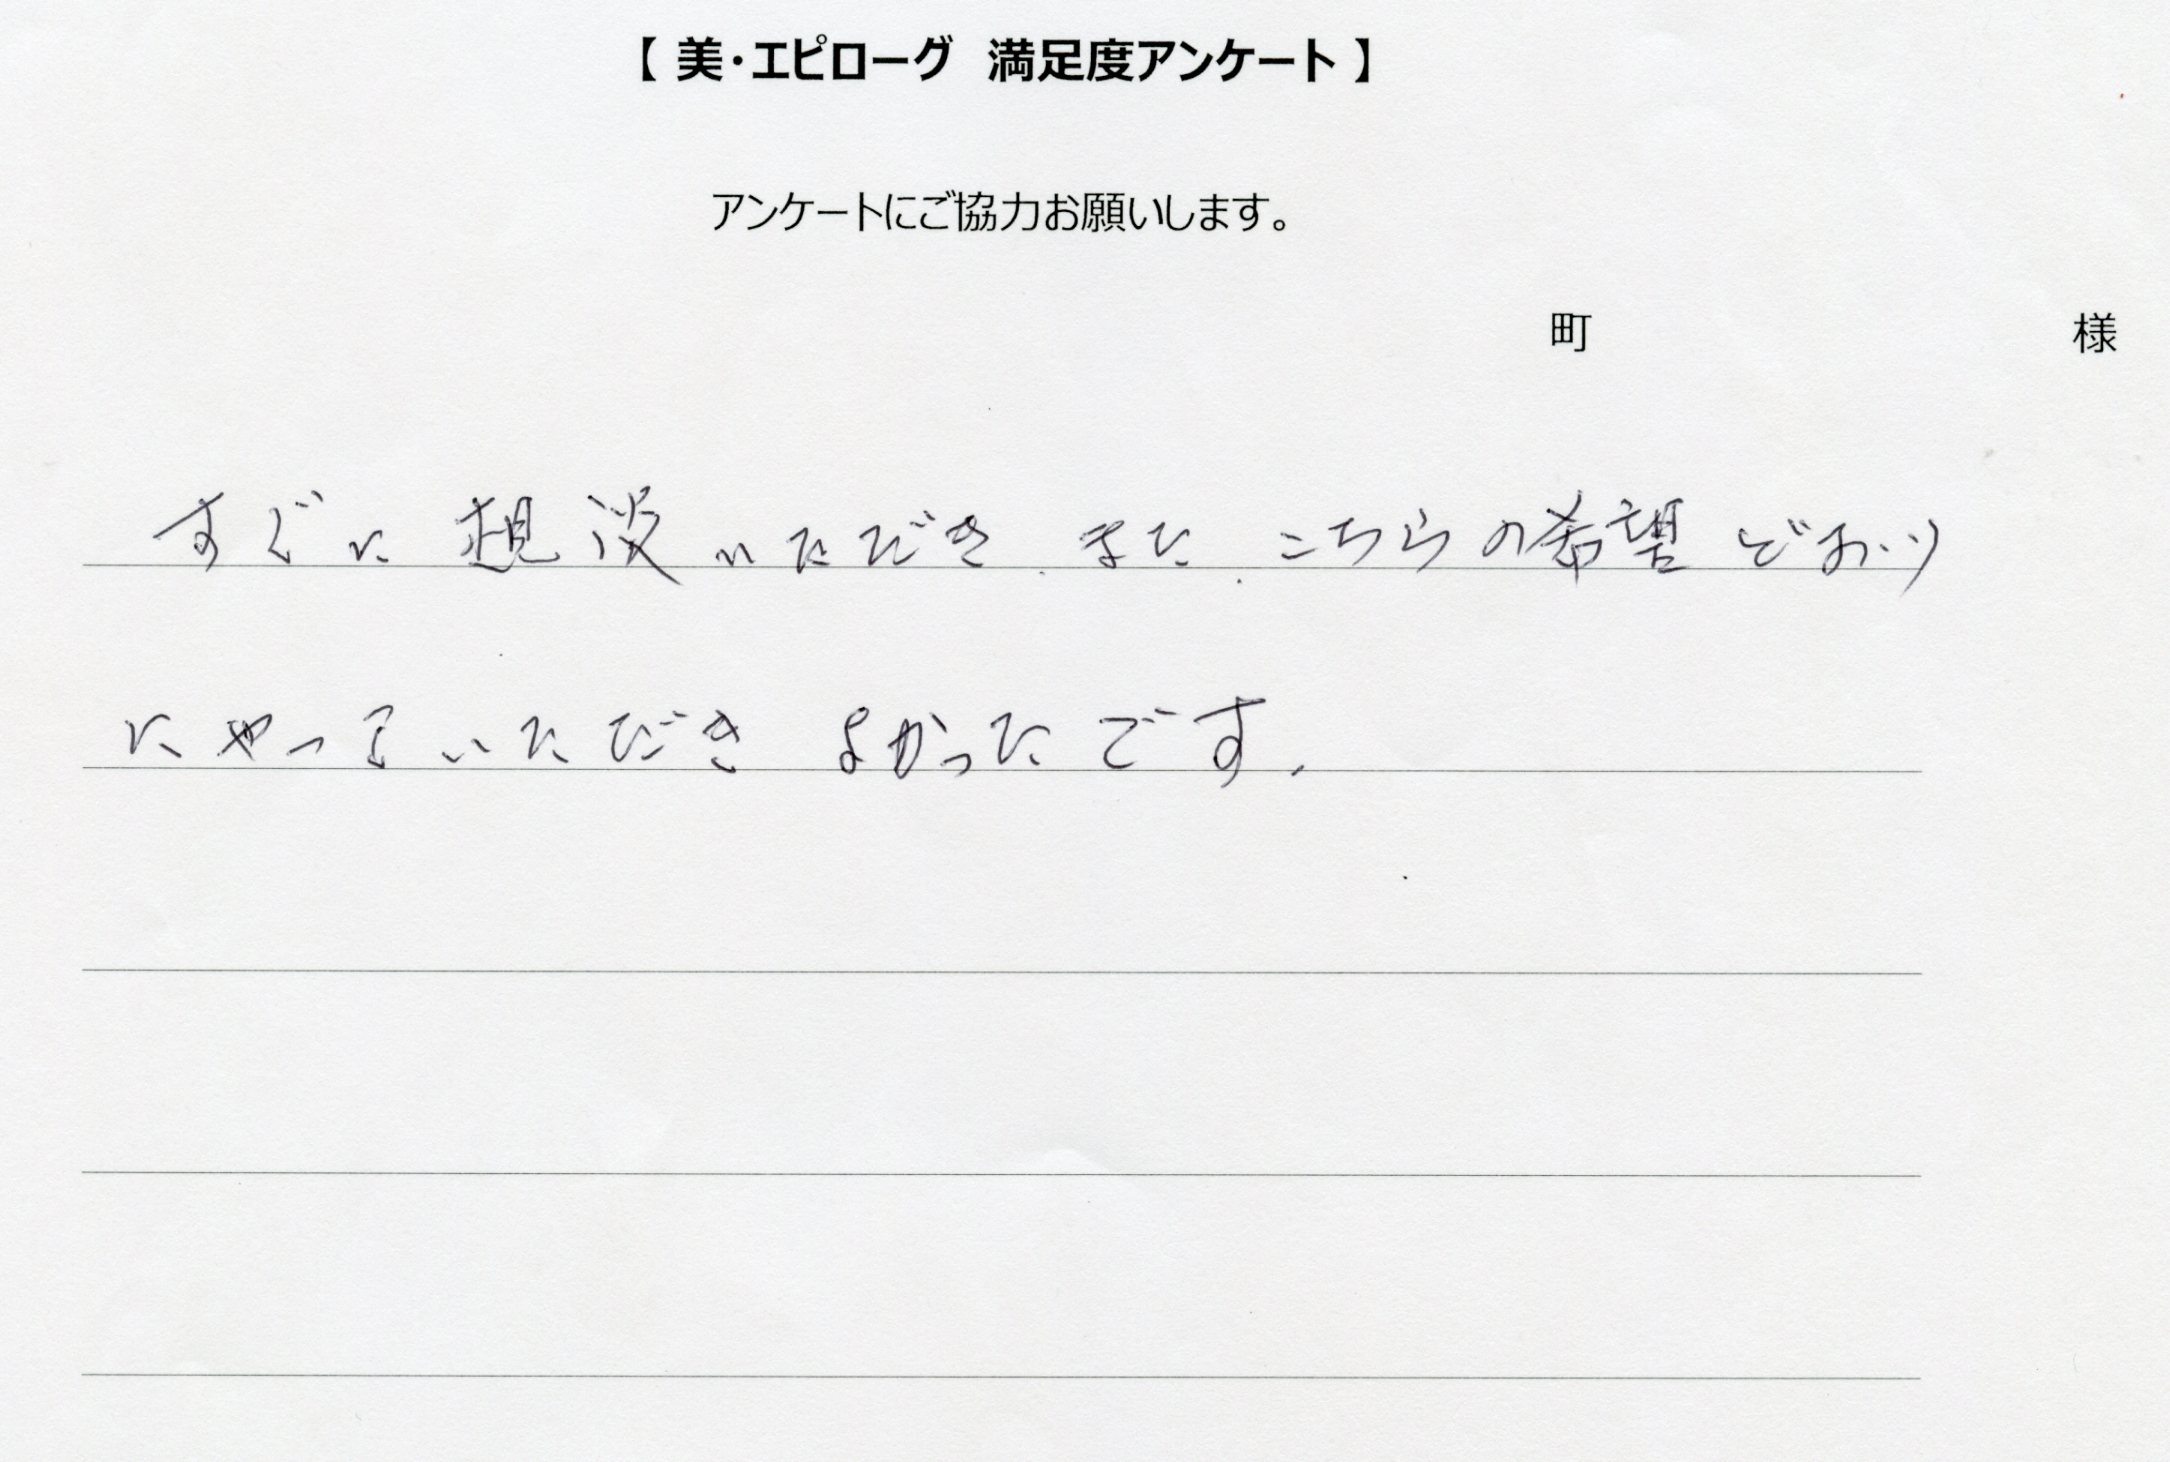 【 美・エピローグ 満足度アンケート 】
アンケートにご協力お願いします。
町 様
すぐに 相談いただき、また、こちらの希望どおり
にやっていただき よかったです。